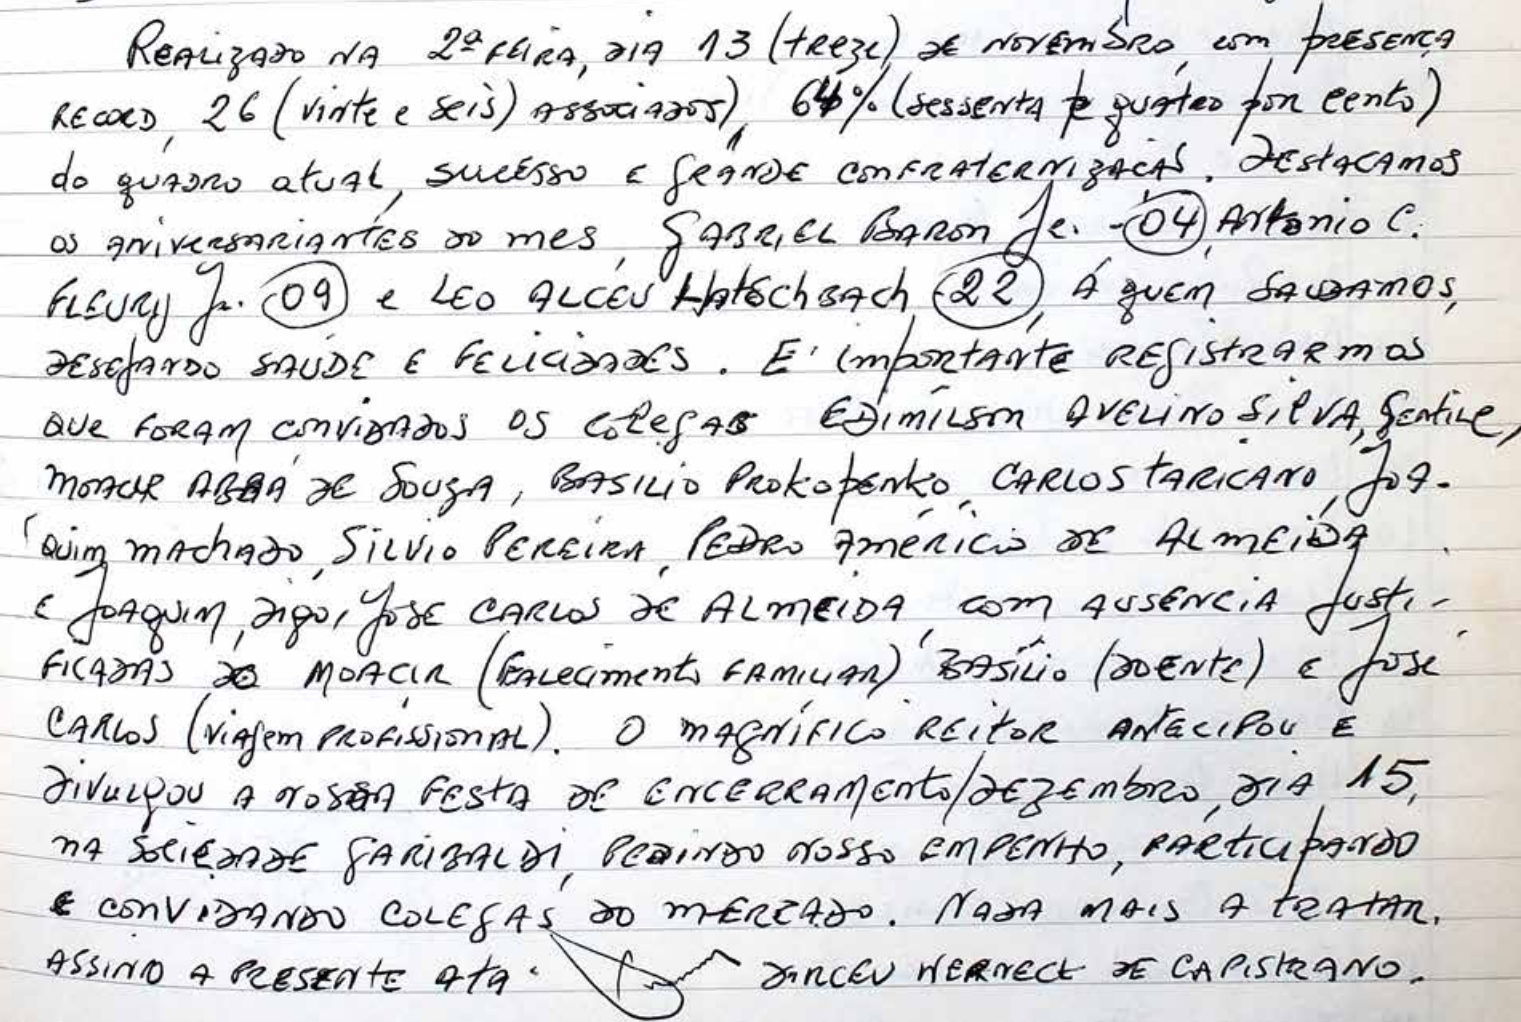 Realizado na 2ª feira, dia 13 (treze) de novembro, com presença
record, 26 (vinte e seis) associados), 64% (sessenta e quatro por cento)
do quadro atual, sucesso e grande confraternizaçaõ. Destacamos
os aniversariantes do mes, Gabriel Baron Jr. - 04, Antonio C.
Fleury Jr. 09 e Leo Alceu Hatschbach 22, á quem saudamos,
desejando saúde e felicidades. E' importante registrarmos
que foram convidados os colegas Edimilson Avelino Silva, Gentile,
Moacir Abbá de Souza, Basilio Prokopenko, Carlos Taricano, Joa-
quim Machado, Silvio Pereira, Pedro Américo de Almeida
e Joaquim, digo, José Carlos de Almeida, com ausencia justi-
ficadas do Moacir (falecimento familiar) Basílio (doente) e José
Carlos (viagem profissional). O Magnífico Reitor antecipou e
divulgou a nossa festa de encerramento/dezembro, dia 15,
na Sociedade Garibaldi, pedindo nosso empenho, participando
e convidando colegas do mercado. Nada mais a tratar.
Assino a presente ata. Dirceu Werneck de Capistrano.